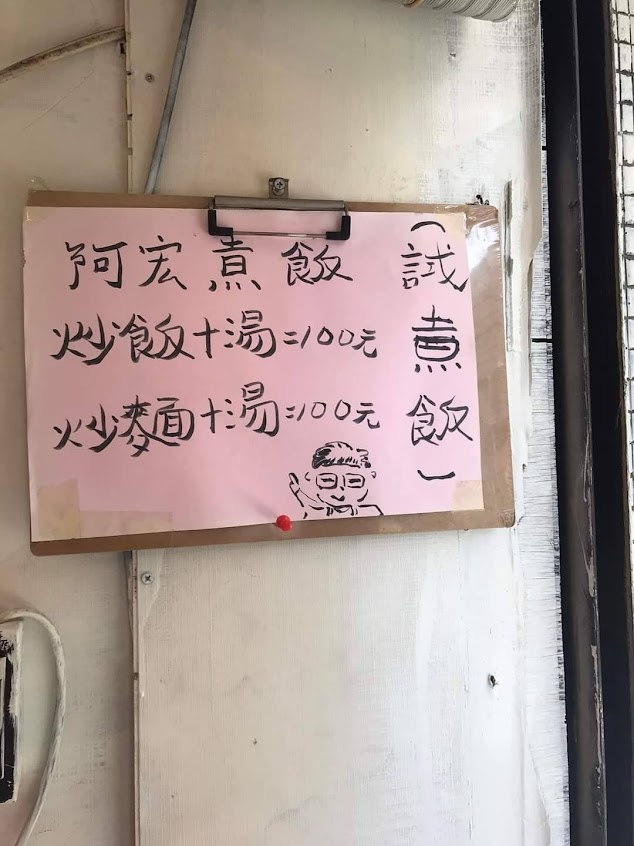 阿宏煮飯
炒飯+湯=100元
炒麵+湯=100元
(試煮飯)